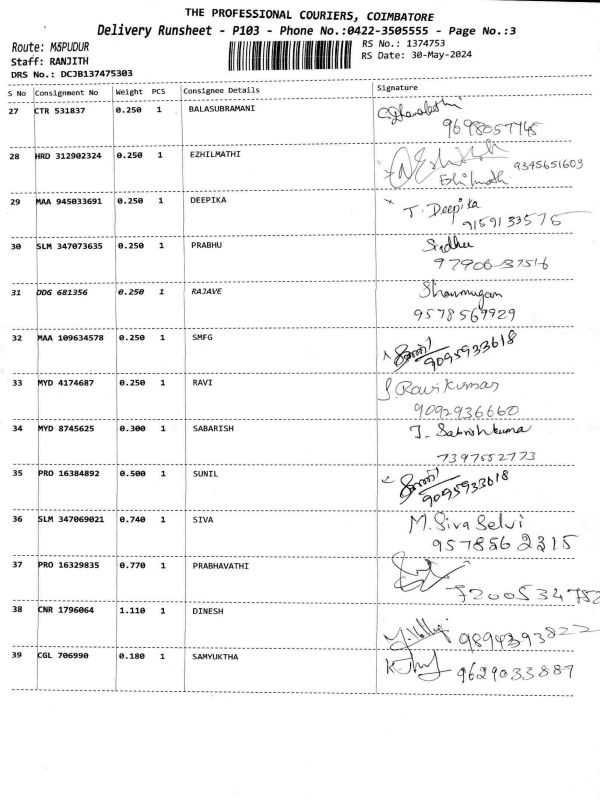 THE PROFESSIONAL COURIERS, COIMBATORE
Delivery Runsheet - P103 - Phone No.:0422-3505555 - Page No.:3
Route: M&PUDUR
RS No.: 1374753
Staff: RANJITH
RS Date: 30-May-2024
DRS No.: DCJB137475303
S No Consignment No Weight PCS Consignee Details Signature
27 CTR 531837 0.250 1 BALASUBRAMANI
28 HRD 312902324 0.250 1 EZHILMATHI
9345651603
29 MAA 945033691 0.250 1 DEEPIKA T. Deepika
9159133576
30 SLM 347073635 0.250 1 PRABHU
97906-37516
31 DDG 681356 0.250 1 RAJAVE Shanmugam
9578569929
32 MAA 109634578 0.250 1 SMFG
9095933618
33 MYD 4174687 0.250 1 RAVI J. Ravikumar
9092936660
34 MYD 8745625 0.300 1 SABARISH
7397552773
35 PRO 16384892 0.500 1 SUNIL
9095933618
36 SLM 347069021 0.740 1 SIVA M. Siva Selvi
957856 2315
37 PRO 16329835 0.770 1 PRABHAVATHI
7200534752
38 CNR 1796064 1.110 1 DINESH
9894393822
39 CGL 706990 0.180 1 SAMYUKTHA
9629033887